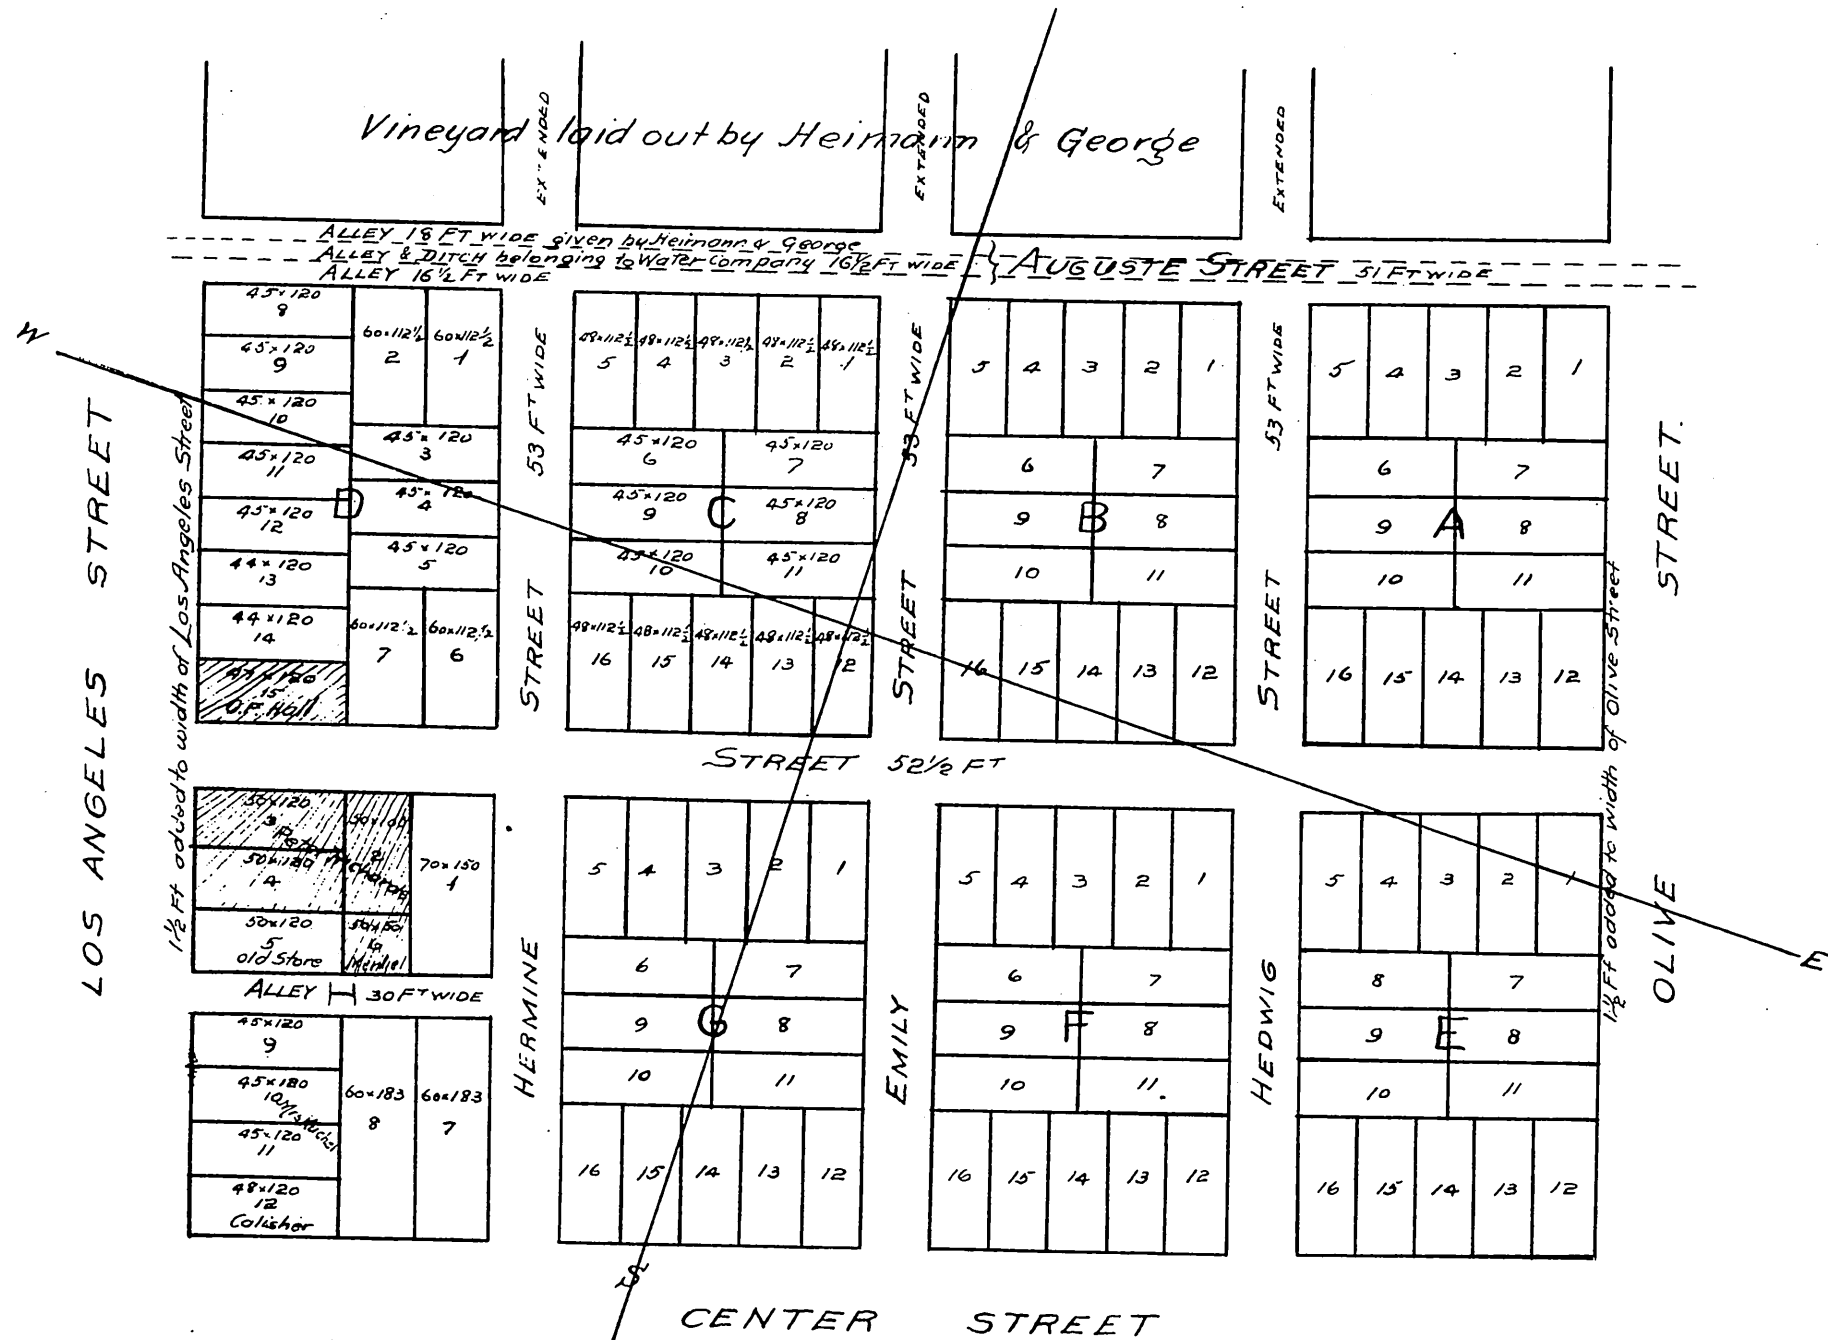 Vineyard laid out by Heimann & George
EXTENDED
EXTENDED
EXTENDED
ALLEY 18 FT WIDE given by Heimann & George
ALLEY & DITCH belonging to Water Company 16½ FT WIDE
ALLEY 16½ FT WIDE
AUGUSTE STREET 51 FT WIDE
W
LOS ANGELES STREET
1½ Ft added to width of Los Angeles Street
D
45×120
8
45×120
9
45×120
10
45×120
11
45×120
12
44×120
13
44×120
14
15
O.F. Hall
60×112½
2
60×112½
1
45×120
3
45×120
4
45×120
5
60×112½
7
60×112½
6
HERMINE STREET 53 FT WIDE
C
48×112½
5
48×112½
4
48×112½
3
48×112½
2
48×112½
1
45×120
6
45×120
7
45×120
9
45×120
8
45×120
10
45×120
11
48×112½
16
48×112½
15
48×112½
14
48×112½
13
48×112½
12
EMILY STREET 53 FT WIDE
B
5 4 3 2 1
6 7
9 8
10 11
16 15 14 13 12
HEDWIG STREET 53 FT WIDE
A
5 4 3 2 1
6 7
9 8
10 11
16 15 14 13 12
1½ Ft added to width of Olive Street
OLIVE STREET.
STREET 52½ FT
50×120
3
50×120
4
50×120
5
old Store
2
70×150
1
ALLEY 30 FT WIDE
45×120
9
45×120
10
45×120
11
48×120
12
Calisher
60×183
8
60×183
7
G
5 4 3 2 1
6 7
9 8
10 11
16 15 14 13 12
F
5 4 3 2 1
6 7
9 8
10 11
16 15 14 13 12
E
5 4 3 2 1
8 7
9 8
10 11
16 15 14 13 12
E
S
CENTER STREET